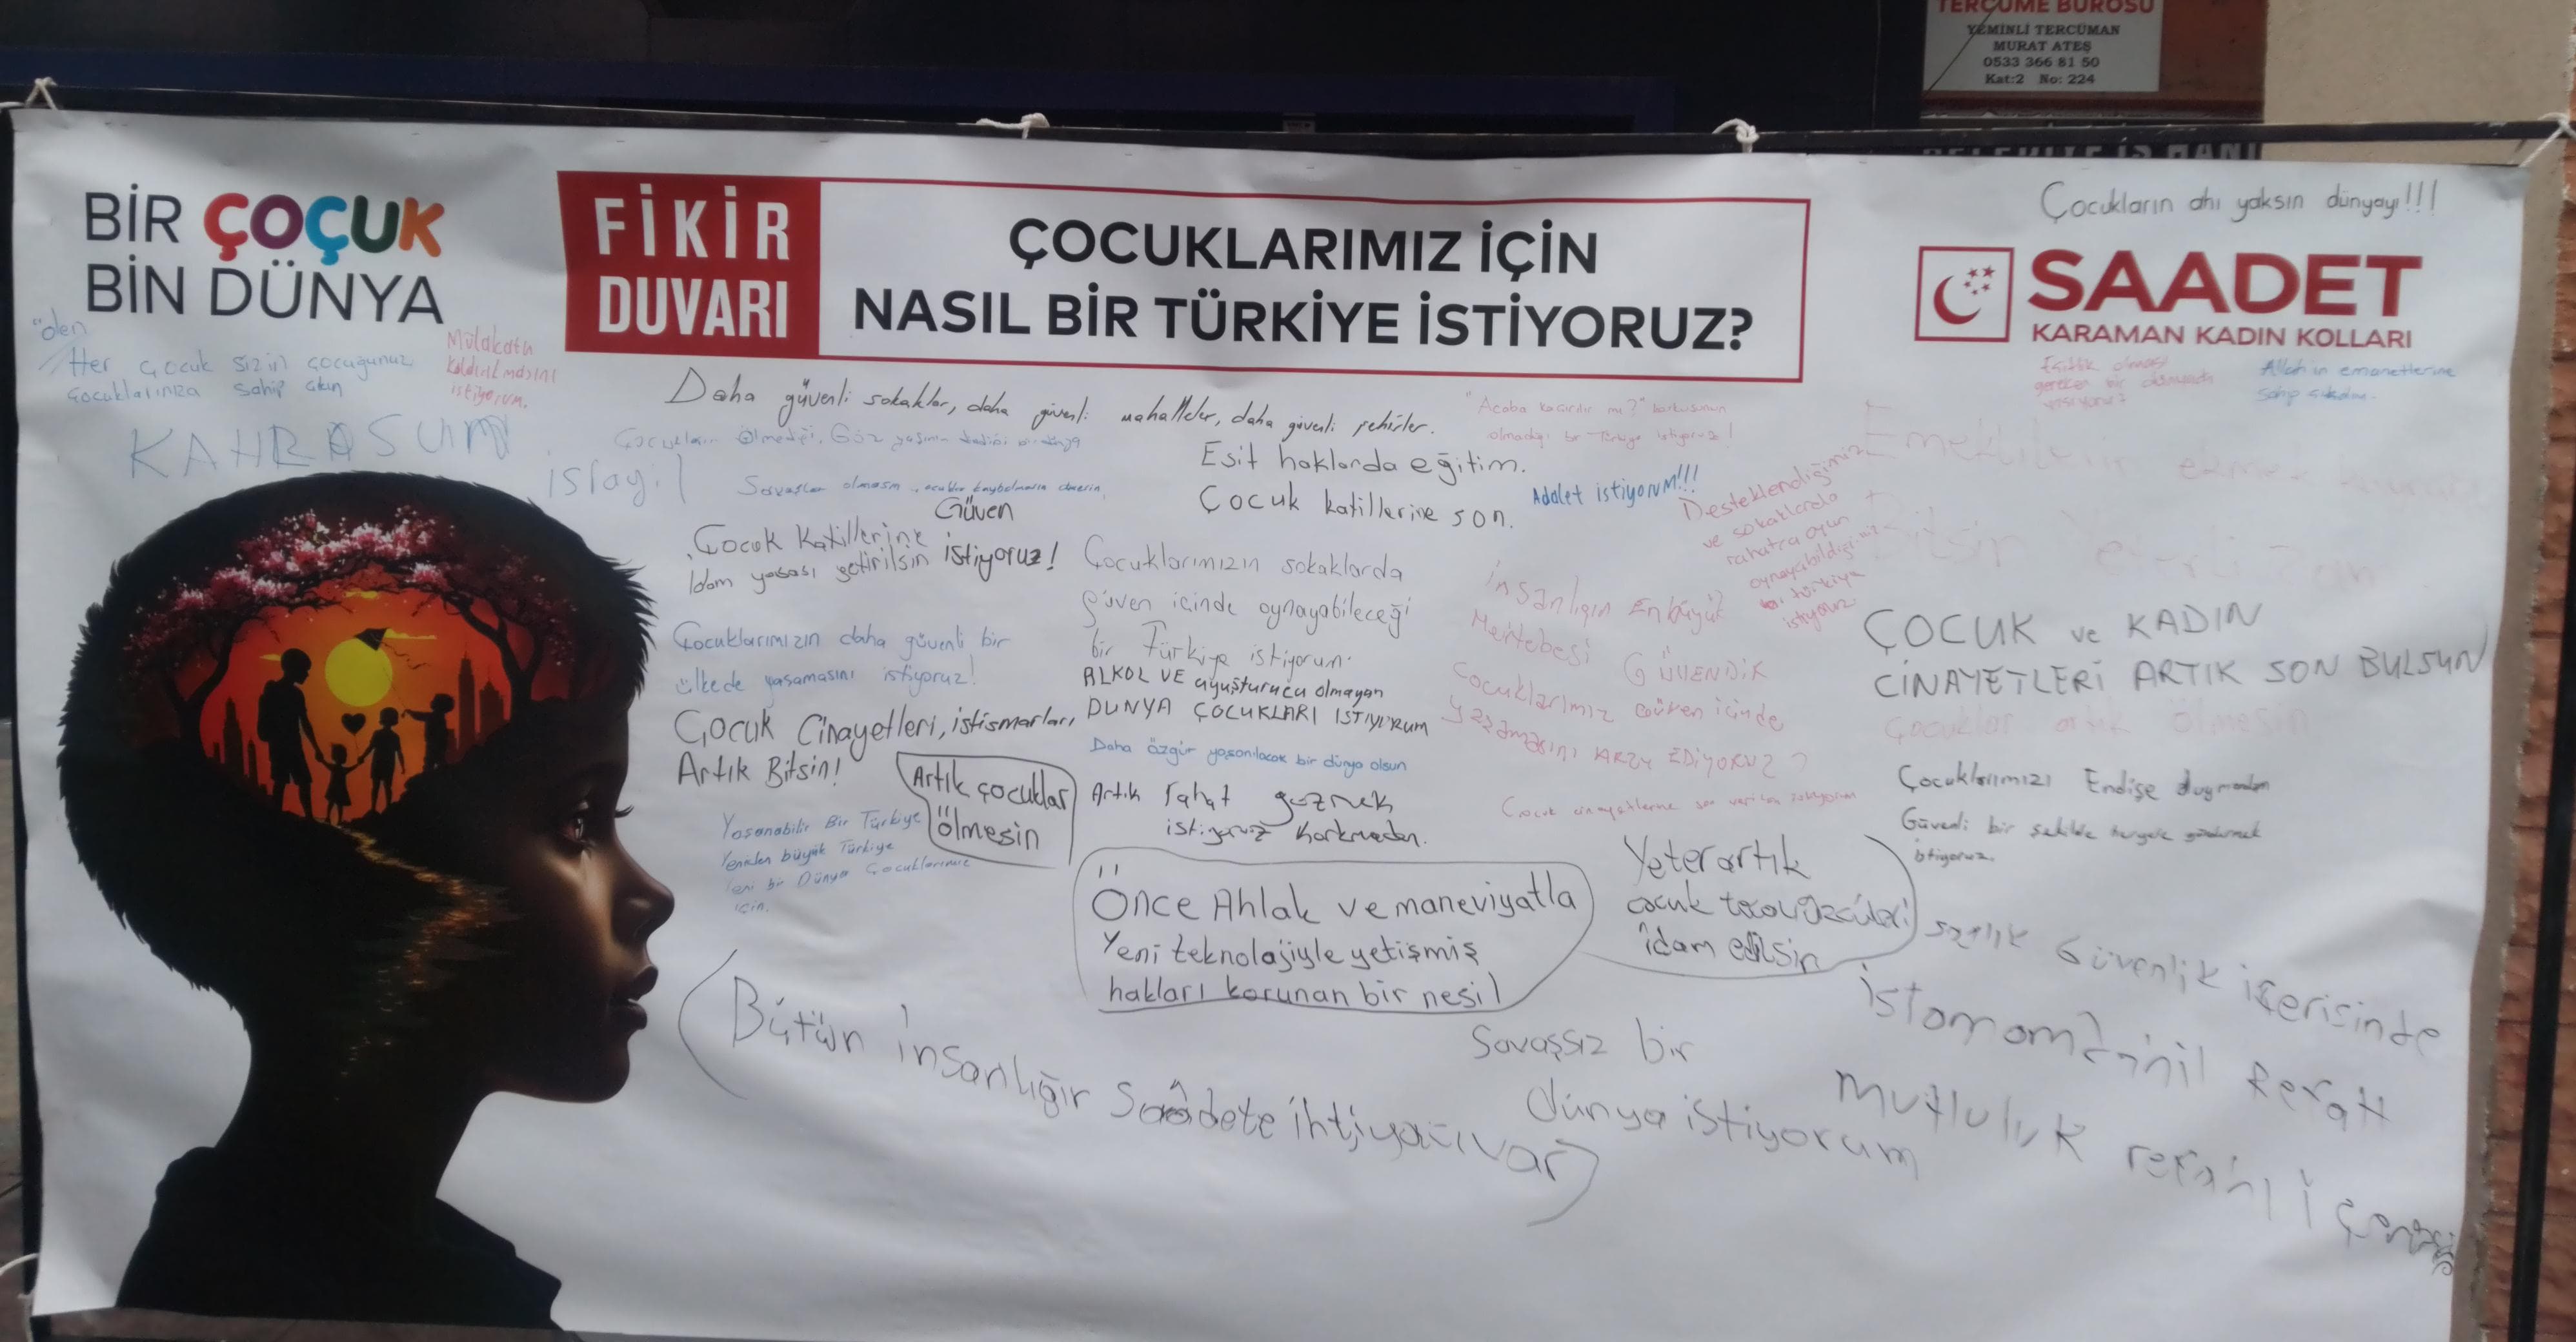 TERCÜME BÜROSU
YEMİNLİ TERCÜMAN
MURAT ATEŞ
0533 366 81 50
Kat:2 No: 224
BELEDİYE İŞ HANI
BİR ÇOÇUK
BİN DÜNYA
FİKİR
DUVARI
ÇOCUKLARIMIZ İÇİN
NASIL BİR TÜRKİYE İSTİYORUZ?
Çocukların ahı yaksın dünyayı!!!
SAADET
KARAMAN KADIN KOLLARI
"ölen
Her çocuk sizin çocuğunuz
çocuklarınıza sahip çıkın
Mülakatın
kaldırılmasını
istiyorum.
KAHROSUM
islayil
Daha güvenli sokaklar, daha güvenli mahalleler, daha güvenli şehirler.
Çocukların ölmediği, Göz yaşının
Savaşlar olmasın
"Acaba kaçırılır mı?" korkusunun
olmadığı bir Türkiye istiyoruz!
Eşitlik olması
gereken bir dünyada
Allah'ın emanetlerine
sahip çıkalım.
Eşit haklarda eğitim.
Çocuk katillerine son.
Adalet istiyorum!!!
Desteklendiğimiz
ve sokaklarda
rahatça oyun
oynayabildiğimiz
bir türkiye
istiyoruz.
Güven
istiyoruz!
Çocuk Katillerine
İdam yasası getirilsin
Çocuklarımızın sokaklarda
güven içinde oynayabileceği
bir Türkiye istiyorum.
İnsanlığın En büyük
Mertebesi GÜVENDİR
Çocuklarımız Güven içinde
yaşamasını ARZU EDİYORUZ
ÇOCUK ve KADIN
CİNAYETLERİ ARTIK SON BULSUN
Çocuklar artık ölmesin
Çocuklarımızın daha güvenli bir
ülkede yaşamasını istiyoruz!
ALKOL VE uyuşturucu olmayan
DUNYA ÇOCUKLARI ISTIYORUM
Çocuk Cinayetleri, istismarları,
Artık Bitsin!
Daha özgür yaşanılacak bir dünya olsun
Artık çocuklar
ölmesin
Artık rahat gezmek
istiyoruz korkmadan.
Çocuk cinayetlerine son verilsin istiyorum
Çocuklarımızı Endişe duymadan
Güvenli bir şekilde göndermek
istiyoruz.
Yaşanabilir Bir Türkiye
Yeniden büyük Türkiye
Yeni bir Dünya Çocuklarımız
için.
Önce Ahlak ve maneviyatla
Yeni teknolojiyle yetişmiş
hakları korunan bir nesil
Yeter artık
çocuk
idam edilsin
Güvenlik içerisinde
Bütün insanlığır Saâdete ihtiyacı var
Savaşsız bir
dünya istiyorum
mutluluk